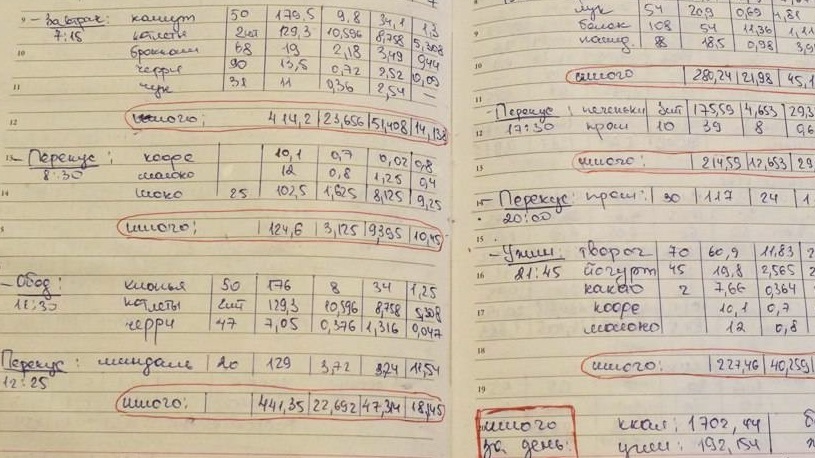 - Завтрак: камут 50 179,5 9,8 34,1 1,3
7:15 котлеты 2шт 129,3 10,596 8,758 5,308
брокколи 68 19 2,18 3,49 0,44
черри 90 13,5 0,72 2,52 0,09
лук 31 11 0,36 2,54 —
итого: 414,2 23,656 51,408 14,138
- Перекус: кофе 10,1 0,7 0,02 0,8
8:30 молоко 12 0,8 1,25 0,4
шоко 25 102,5 1,625 8,125 9,25
итого: 124,6 3,125 9,395 10,45
- Обед: киноья 50 176 8 34 1,25
11:30 котлеты 2шт 129,3 10,596 8,758 5,308
черри 47 7,05 0,376 1,316 0,047
Перекус: миндаль 20 129 3,72 3,24 11,54
12:25
итого: 441,35 22,692 47,314 18,145
лук 54 20,9 0,69 4,81
белок 108 54 11,36 1,11
8 18,5 0,98 3,9
итого 280,24 21,98 45,1
- Перекус: печеньки 3шт 175,59 4,653 29,3
17:30 прот 10 39 8 0,6
итого: 214,59 12,653 29,
- Перекус: прот: 30 117 24 1
20:00
- Ужин: творог 70 60,9 11,83 2
21:45 йогурт 45 19,8 2,565 2
какао 2 7,66 0,364
кофе 10,1 0,7
молоко 12 0,8
итого: 227,46 40,259
итого ккал: 1702,44 б
за день: углы: 192,154